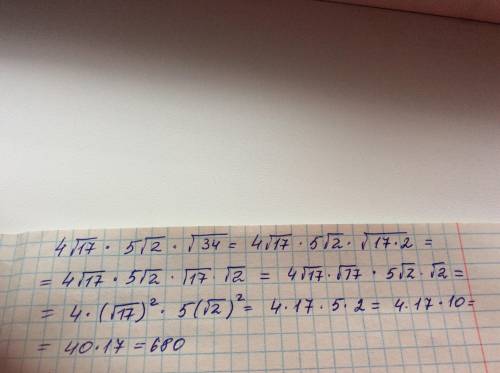 4√17 · 5√2 · √34 = 4√17 · 5√2 · √17·2 =
= 4√17 · 5√2 · √17 · √2 = 4√17 · √17 · 5√2 · √2 =
= 4 · (√17)² · 5(√2)² = 4 · 17 · 5 · 2 = 4 · 17 · 10 =
= 40 · 17 = 680